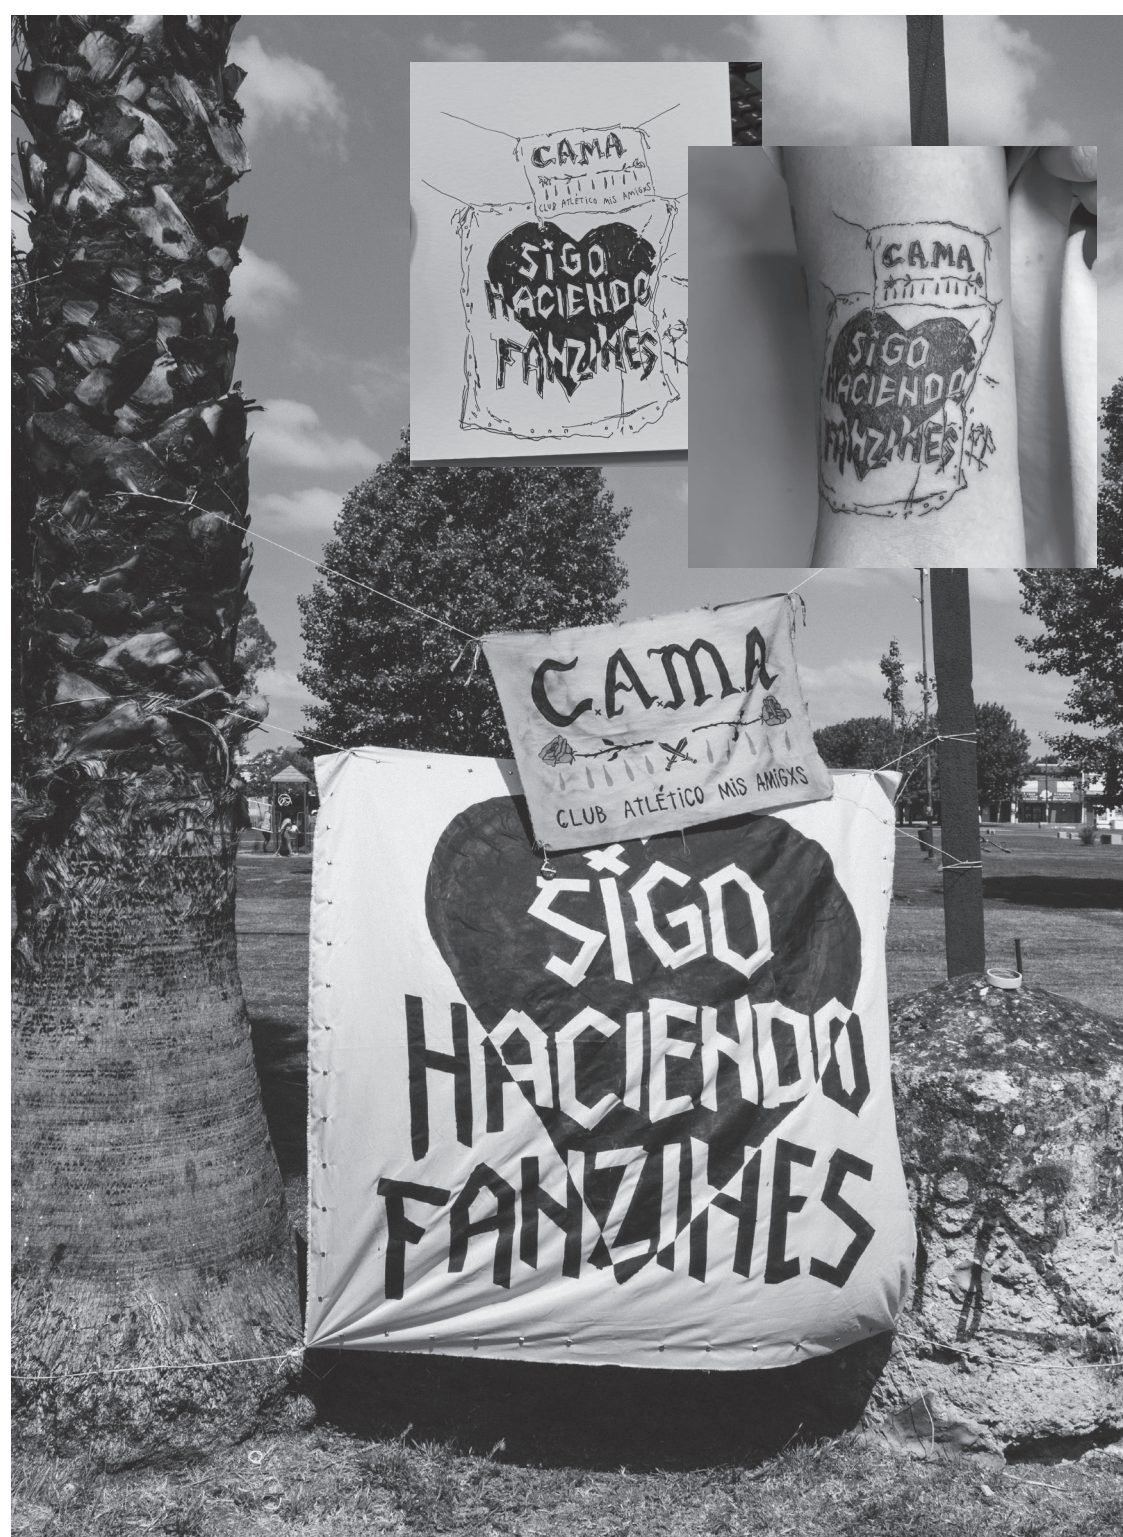 CAMA
CLUB ATLÉTICO MIS AMIGXS
SiGO
HACIENDO
FANZINES
C.A.M.A
SiGO
HACIENDO
FANZINES
C.A.M.A
CLUB ATLÉTICO MiS AMiGXS
SiGO
HACIENDO
FANZINES